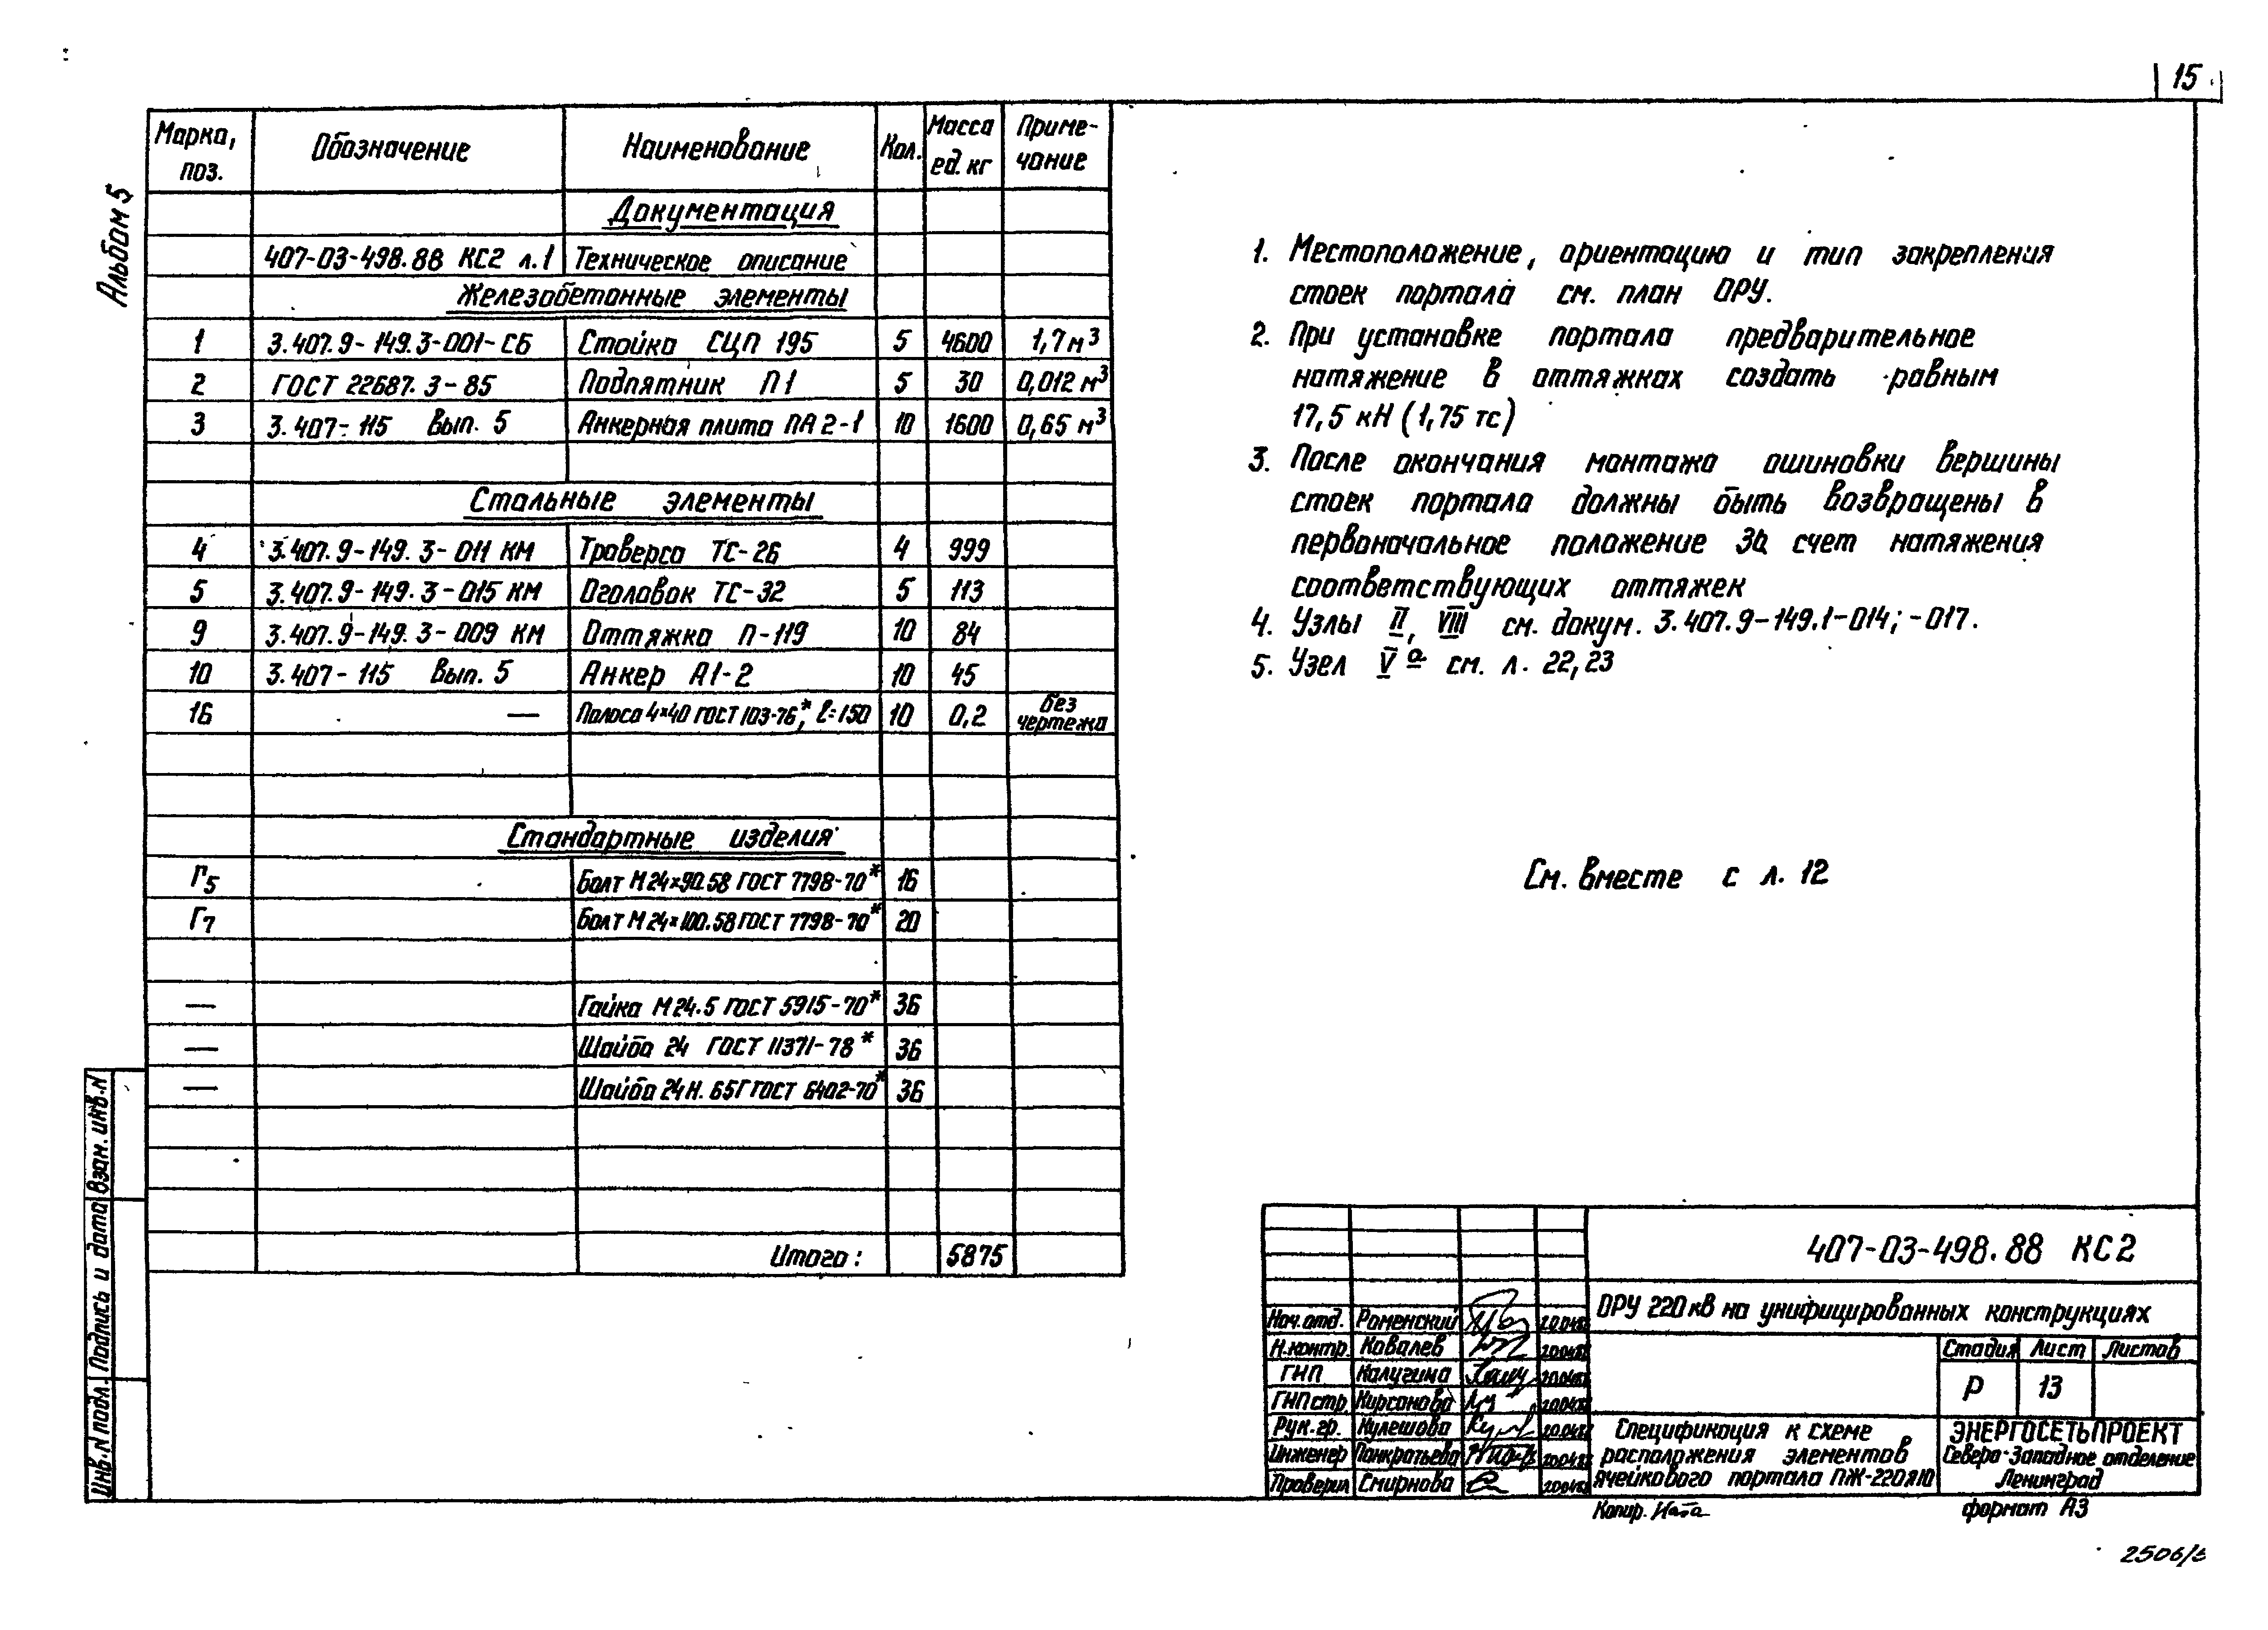 15
Альбом 5
Марка, поз. Обозначение Наименование Кол. Масса ед. кг Примечание
Документация
407-03-498.88 КС2 л.1 Техническое описание
Железобетонные элементы
1 3.407.9-149.3-001-СБ Стойка СЦП 195 5 4600 1,7 м³
2 ГОСТ 22687.3-85 Подпятник П1 5 30 0,012 м³
3 3.407-115 Вып. 5 Анкерная плита ПА2-1 10 1600 0,65 м³
Стальные элементы
4 3.407.9-149.3-011 КМ Траверса ТС-26 4 999
5 3.407.9-149.3-015 КМ Оголовок ТС-32 5 113
9 3.407.9-149.3-009 КМ Оттяжка П-119 10 84
10 3.407-115 Вып. 5 Анкер А1-2 10 45
16 — Полоса 4×40 ГОСТ 103-76*, ℓ=150 10 0,2 без чертежа
Стандартные изделия
Г5 Болт М24×90.58 ГОСТ 7798-70* 16
Г7 Болт М24×100.58 ГОСТ 7798-70* 20
— Гайка М24.5 ГОСТ 5915-70* 36
— Шайба 24 ГОСТ 11371-78* 36
— Шайба 24Н.65Г ГОСТ 6402-70* 36
Итого: 5875
1. Местоположение, ориентацию и тип закрепления
стоек портала см. план ОРУ.
2. При установке портала предварительное
натяжение в оттяжках создать равным
17,5 кН (1,75 тс)
3. После окончания монтажа ошиновки вершины
стоек портала должны быть возвращены в
первоначальное положение за счет натяжения
соответствующих оттяжек
4. Узлы II, VIII см. докум. 3.407.9-149.1-014; -017.
5. Узел Vа см. л. 22,23
См. вместе с л. 12
407-03-498.88 КС2
ОРУ 220 кВ на унифицированных конструкциях
Нач. отд. Роменский
Н.контр. Ковалев
ГИП Калугина
ГИП стр. Кирсанова
Рук. гр. Кулешова
Инженер Панкратьева
Проверил Смирнова
Стадия Лист Листов
Р 13
Спецификация к схеме
расположения элементов
ячейкового портала ПЖ-220Я10
ЭНЕРГОСЕТЬПРОЕКТ
Северо-Западное отделение
Ленинград
Копир. Ната
формат А3
Инв.N подл. Подпись и дата Взам. инв.N